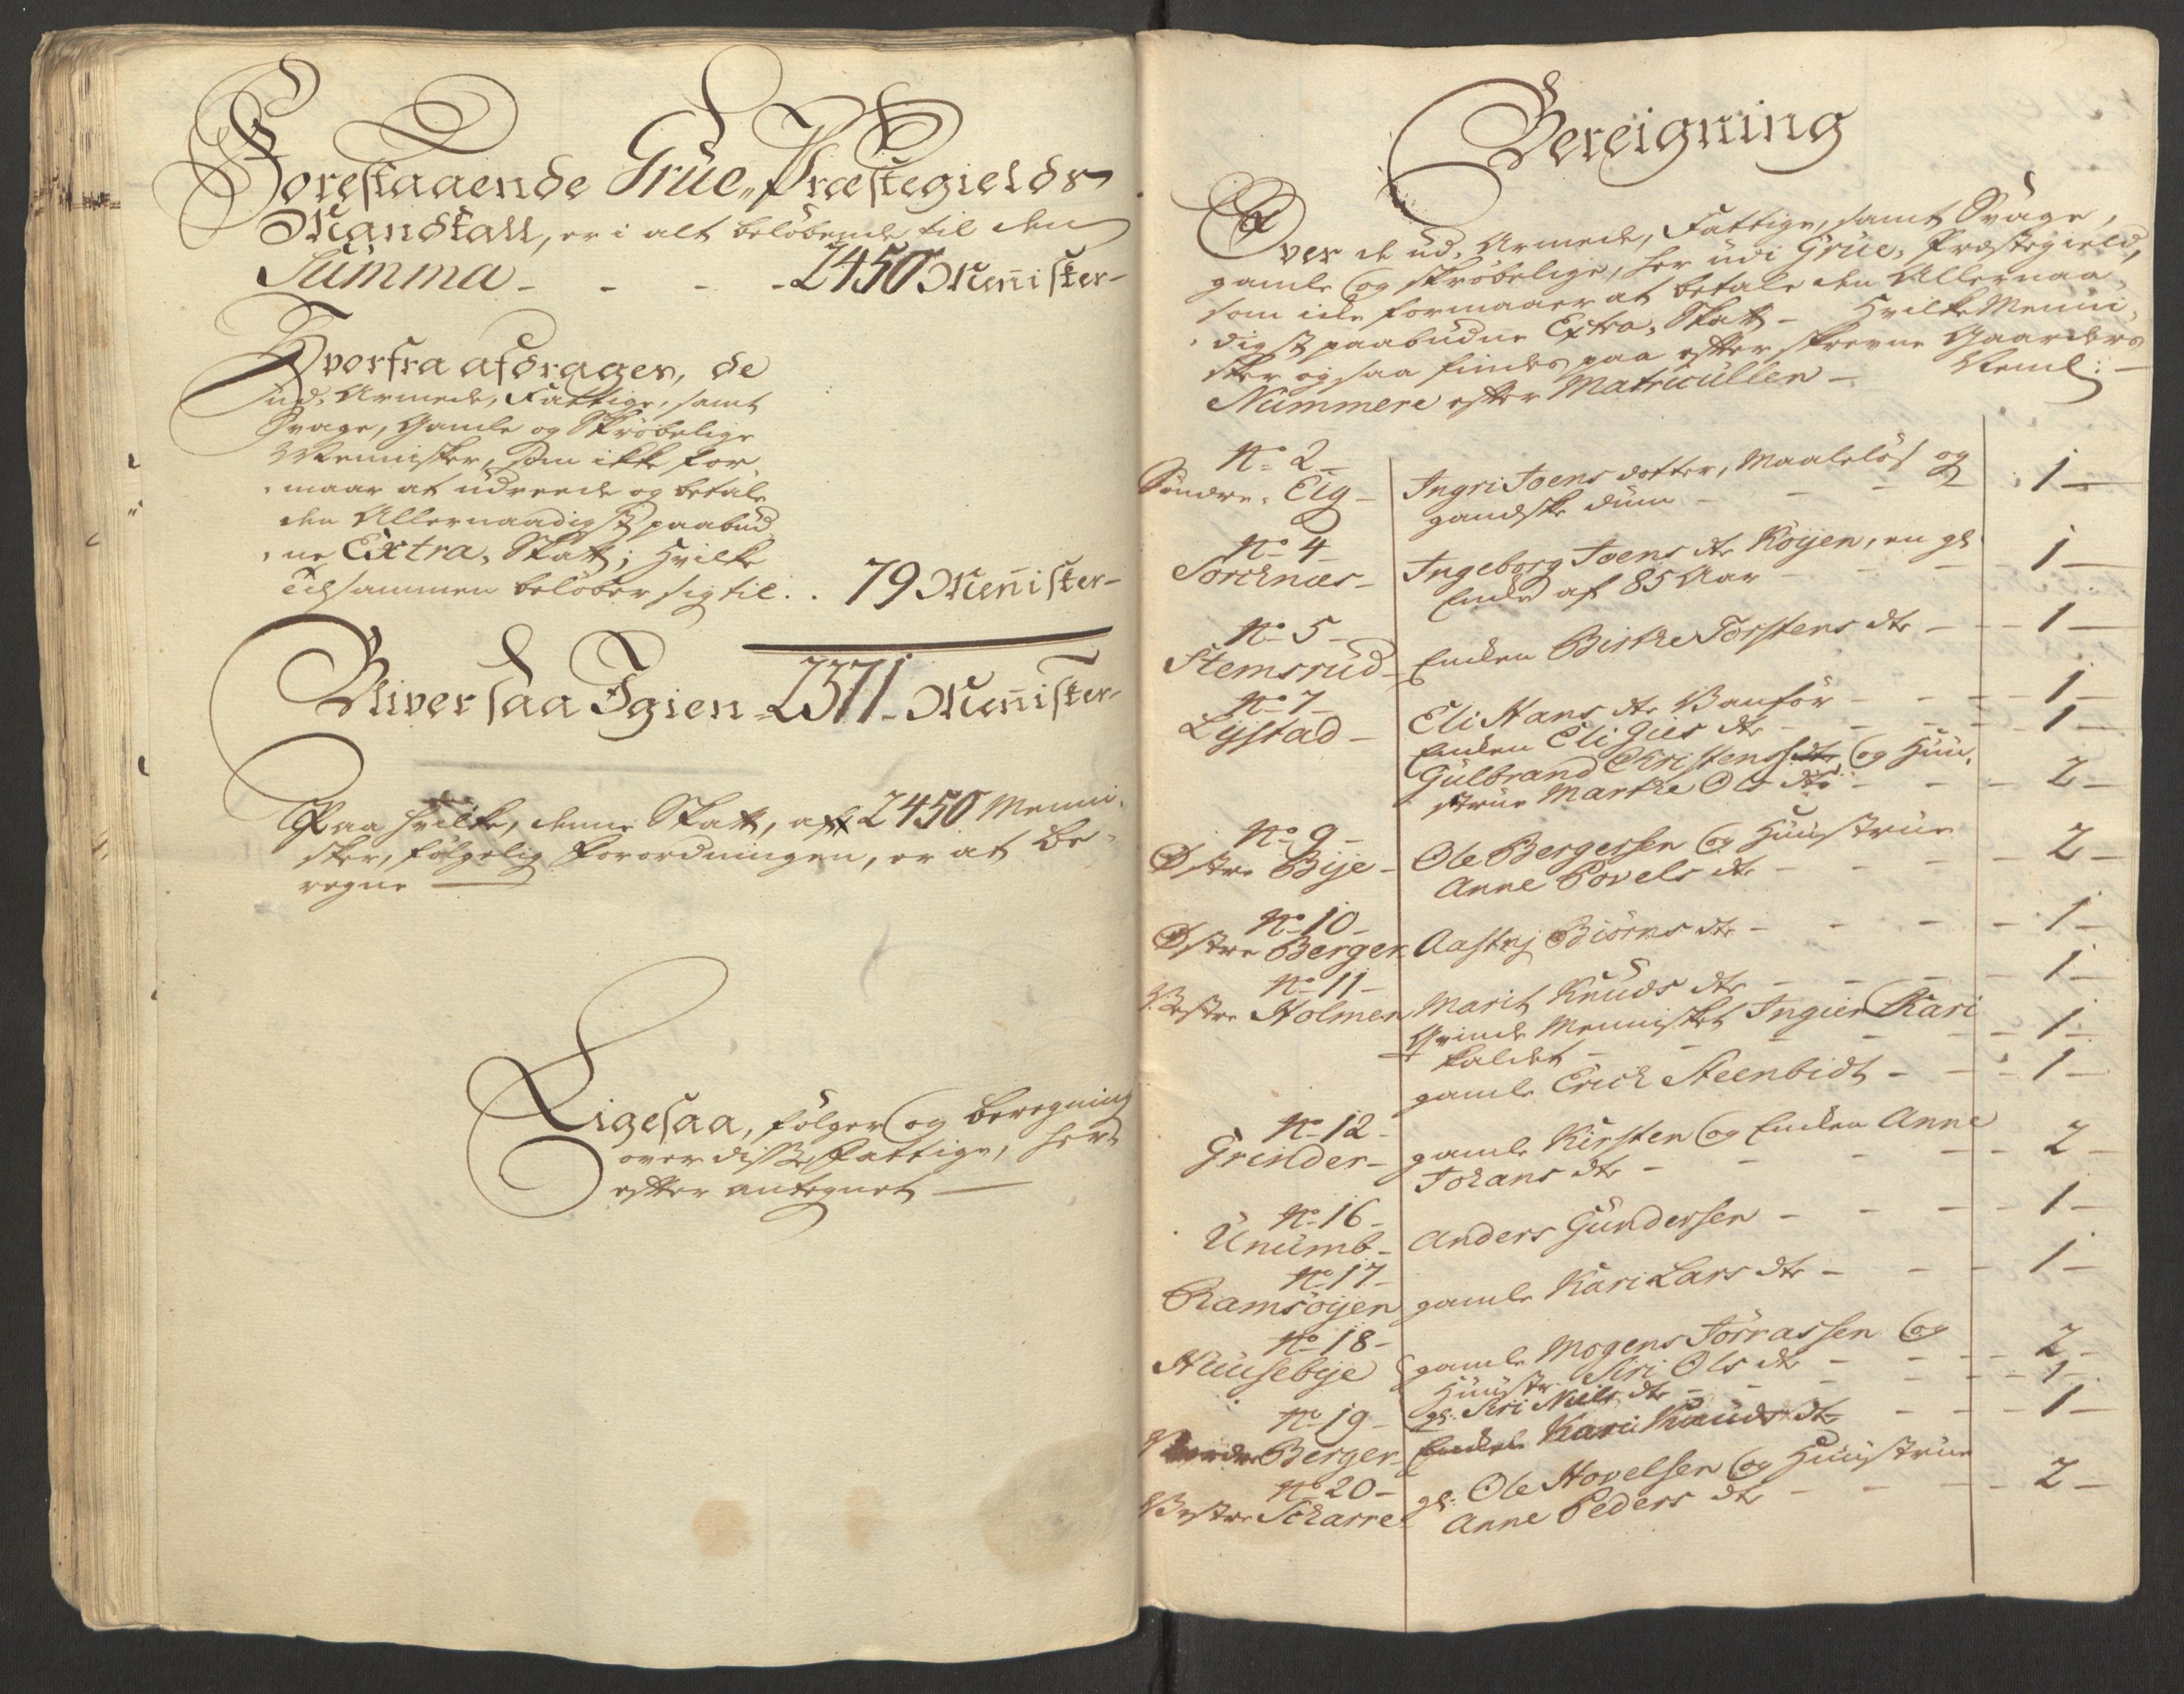 Forestaaende Grue,, Præstegields
Mandtall, er i alt beløbende til den
Summa - - - - 2450 Meñister-
Hvorfra afdrages, de
ud, Armede, Fattige, samt
Svage, Gamle og Skrøbelige
Mennisker, som ikke for,
maar at udreede og betale
den Allernaadigst paabud,
ne Extra, Skatt; Hvilke
Tilsammen beløber sig til. . 79 Meñister-
Bliver saa Igien - 2371 - Meñister-
Paa hvilke, denne Skatt, af 2450 Menni,
sker, følgelig Forordningen, er at be,
regne —
Ligesaa, følger og beregning
over disse Fattige, her
efter antegnet —
Bereigning
Over de ud, Armede, Fattige, samt Svage,
gamle og skrøbelige, her udi Grue, Præstegield,
som icke formaaer at betale den Allernaa,
digst paabudne Extra, Skatt - Hvilke Menni,
sker og saa findes paa efter skrevne Gaarders
Nummere efter Matricullen - Neml: -
No 2 -
Søndre, Eig - Ingri Joens dotter, Maaleløs og
gandske dum - - - - 1 -
No 4 -
Sorknæs - Ingeborg Joens dtr Røijen, en gl
Encke af 85 Aar - - - 1 -
No 5 -
Stemsrud - Encken Birthe Torstens dtr - - 1 -
No 7 -
Lystad - Eli Hans dtr Vanfør - - - 1 -
Encken Eli Gies dtr - - - 1 -
Gulbrand Christens dtr og Huu,
strue Marthe Ols dtr - - - 2 -
No 9 -
Østre Bije - Ole Bergersen og Huustrue
Anne Povels dtr - - - 2 -
No 10 -
Østre Berger Aastrj Biörns dtr - - - 1 -
No 11 -
Vestre Holmen Marit Knuds dtr - - - 1 -
Qvinde Mennisket Ingier Kari
kaldet - - - - 1 -
gamle Erich Steenbidt - - - 1 -
No 12 -
Grinder - gamle Kirsten og Encken Anne
Johans dtr - - - - 2 -
No 16 -
Unumb - Anders Gundersen - - - 1 -
No 17 -
Ramsöijen gamle Kari Lars dtr - - - 1 -
No 18 -
Huusebije gamle Mogens Torrassen og
Huustr Siri Ols dtr - - - 2 -
gl: Siri Niels dtr - - - 1 -
No 19 -
Berger - Encken Kari Knuds dtr - - - 1 -
No 20 -
Vestre Scharre gl: Ole Hovelsen og Huustrue
Anne Peders dtr - - - 2 -